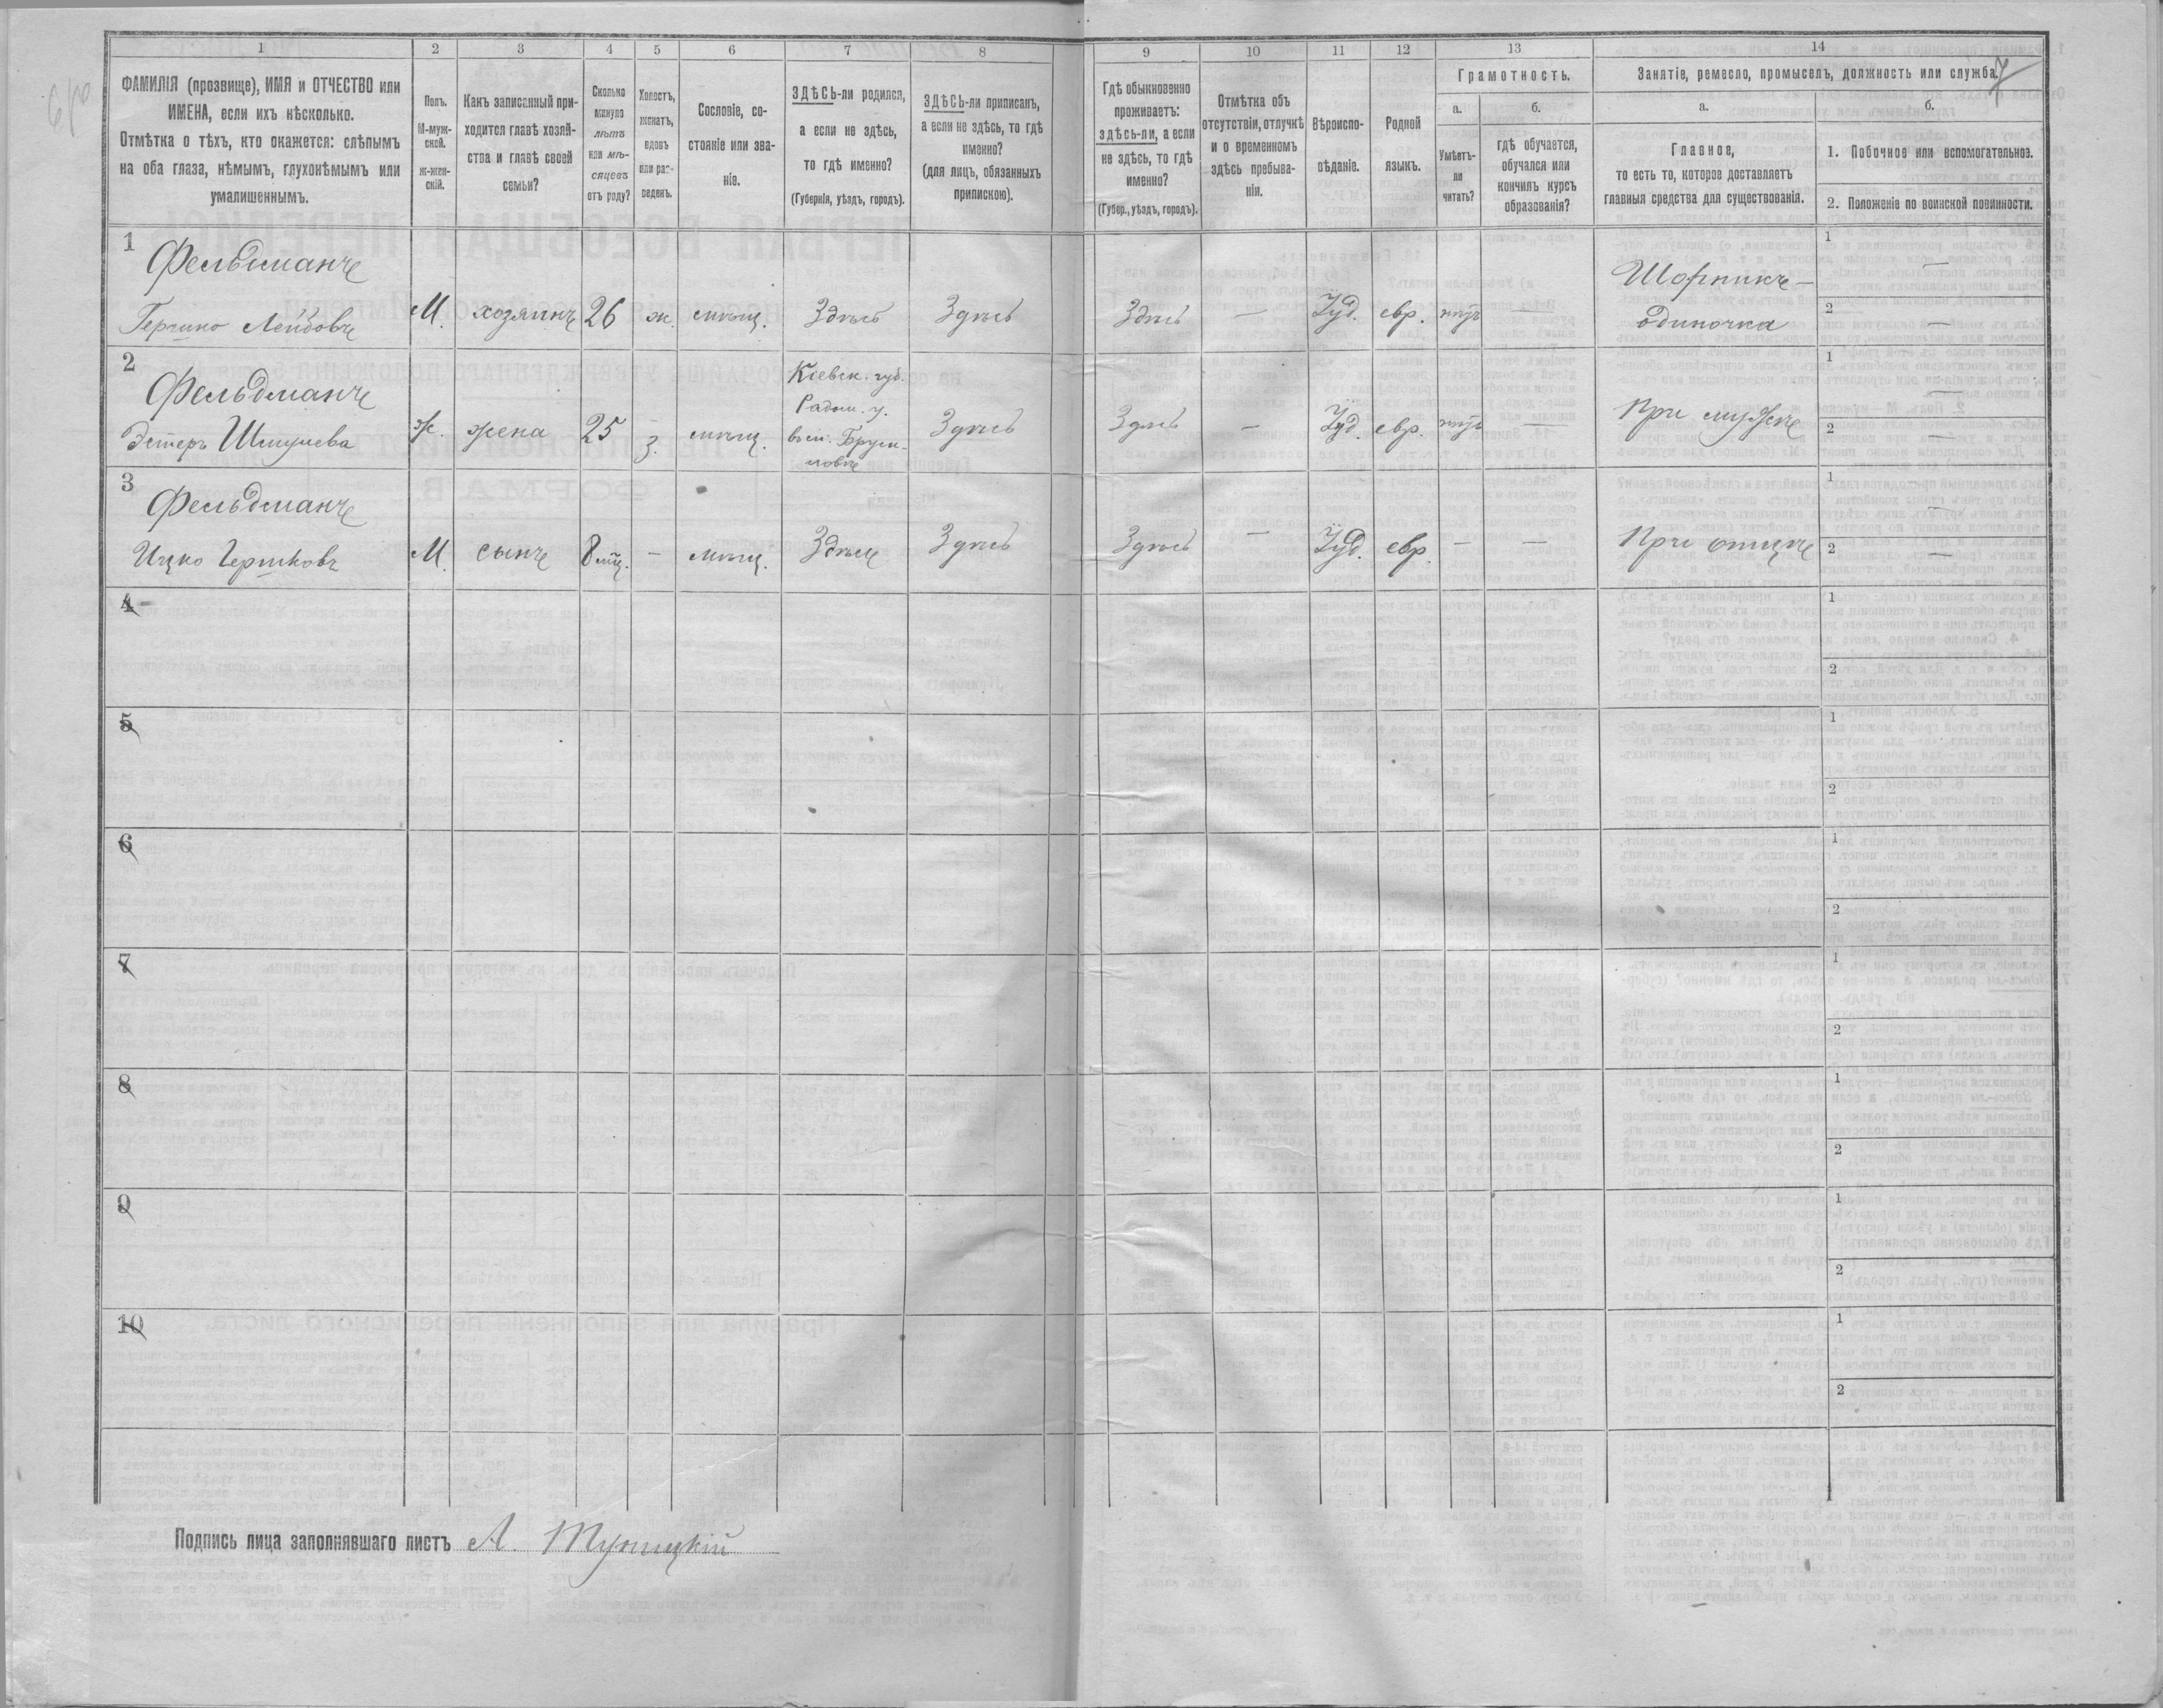 1 2 3 4 5 6 7 8 9 10 11 12 13 14
ФАМИЛІЯ (прозвище), ИМЯ и ОТЧЕСТВО или
ИМЕНА, если ихъ нѣсколько.
Отмѣтка о тѣхъ, кто окажется: слѣпымъ
на оба глаза, нѣмымъ, глухонѣмымъ или
умалишеннымъ.
Полъ.
М-муж-
ской.
ж-жен-
скій.
Какъ записанный при-
ходится главѣ хозяй-
ства и главѣ своей
семьи?
Сколько
минуло
лѣтъ
или мѣ-
сяцевъ
отъ роду?
Холостъ,
женатъ,
вдовъ
или раз-
веденъ.
Сословіе, со-
стояніе или зва-
ніе.
ЗДѢСЬ-ли родился,
а если не здѣсь,
то гдѣ именно?
(Губернія, уѣздъ, городъ).
ЗДѢСЬ-ли приписанъ,
а если не здѣсь, то гдѣ
именно?
(для лицъ, обязанныхъ
припискою).
Гдѣ обыкновенно
проживаетъ:
здѣсь-ли, а если
не здѣсь, то гдѣ
именно?
(Губер., уѣздъ, городъ).
Отмѣтка объ
отсутствіи, отлучкѣ
и о временномъ
здѣсь пребыва-
ніи.
Вѣроиспо-
вѣданіе.
Родной
языкъ.
Грамотность.
а.
Умѣетъ-
ли
читать?
б.
гдѣ обучается,
обучался или
кончилъ курсъ
образованія?
Занятіе, ремесло, промыселъ, должность или служба.
7
а.
Главное,
то есть то, которое доставляетъ
главныя средства для существованія.
б.
1. Побочное или вспомогательное.
2. Положеніе по воинской повинности.
1
Фельдманъ
Лейбовъ
М. хозяинъ 26 ж. мѣщ. Здѣсь Здѣсь
Здѣсь — Іуд. евр. —
Шорникъ —
одиночка
1 —
2 —
2
Фельдманъ
Эстеръ Шмулева
Ж. жена 25 з. мѣщ.
Кіевск. губ.
Радом. у.
Здѣсь
Здѣсь — Іуд. евр. —
При мужѣ
1 —
2 —
3
Фельдманъ
Ицко Гершковъ
М. сынъ 8 мѣс. — мѣщ. Здѣсь Здѣсь
Здѣсь — Іуд. евр. — —
При отцѣ
1 —
2 —
4
1
2
5
1
2
6
1
2
7
1
2
8
1
2
9
1
2
10
1
2
Подпись лица заполнявшаго листъ А.